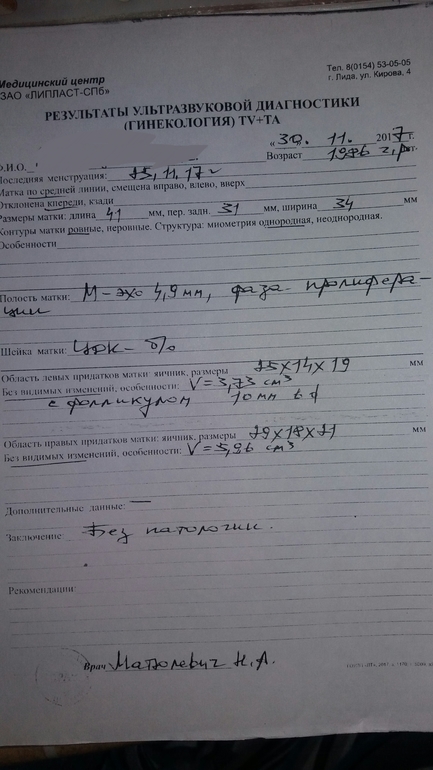 Медицинский центр
ЗАО «ЛИПЛАСТ-СПб»
Тел. 8(0154) 53-05-05
г. Лида, ул. Кирова, 4
РЕЗУЛЬТАТЫ УЛЬТРАЗВУКОВОЙ ДИАГНОСТИКИ
(ГИНЕКОЛОГИЯ) TV+TA
«30. 11. 2017 г.
Ф.И.О.
Возраст 1986 г.р.
Последняя менструация: 25.11.17 г
Матка по средней линии, смещена вправо, влево, вверх
Отклонена кпереди, кзади
Размеры матки: длина 41 мм, пер. задн. 31 мм, ширина 34 мм
Контуры матки ровные, неровные. Структура: миометрия однородная, неоднородная.
Особенности
Полость матки: М-эхо 4,9 мм, фаза пролифера-
ции
Шейка матки: ЦДК- б/о
Область левых придатков матки: яичник, размеры 25х14х19 мм
Без видимых изменений, особенности: V=3,73 см³
с фолликулом 10мм в d
Область правых придатков матки: яичник, размеры 29х18х21 мм
Без видимых изменений, особенности: V=5,96 см³
Дополнительные данные: —
Заключение: Без патологии.
Рекомендации:
Врач Матюлевич Н.А.